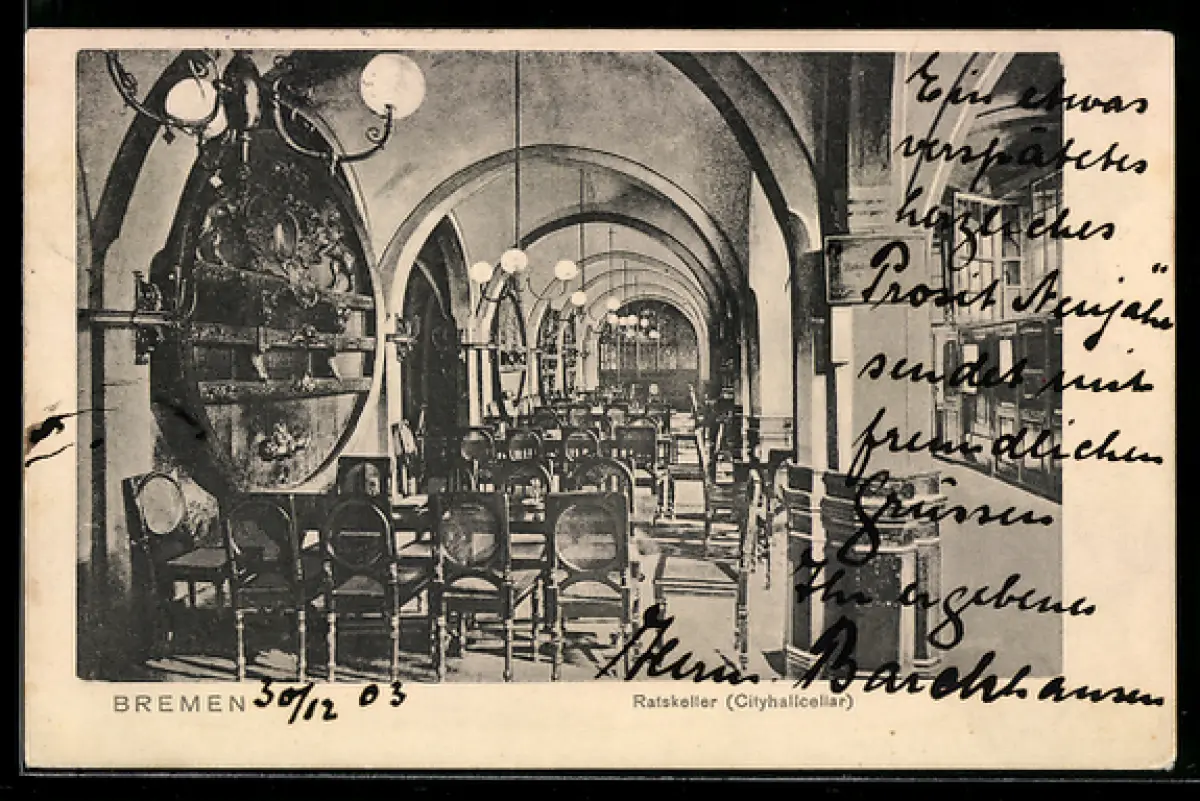 Ein etwas
verspätetes
herzliches
Prosit Neujahr"
sendet mit
freundlichen
Grüssen
Ihr ergebener
Herm. Barckhausen
BREMEN 30/12 03
Ratskeller (Cityhallcellar)